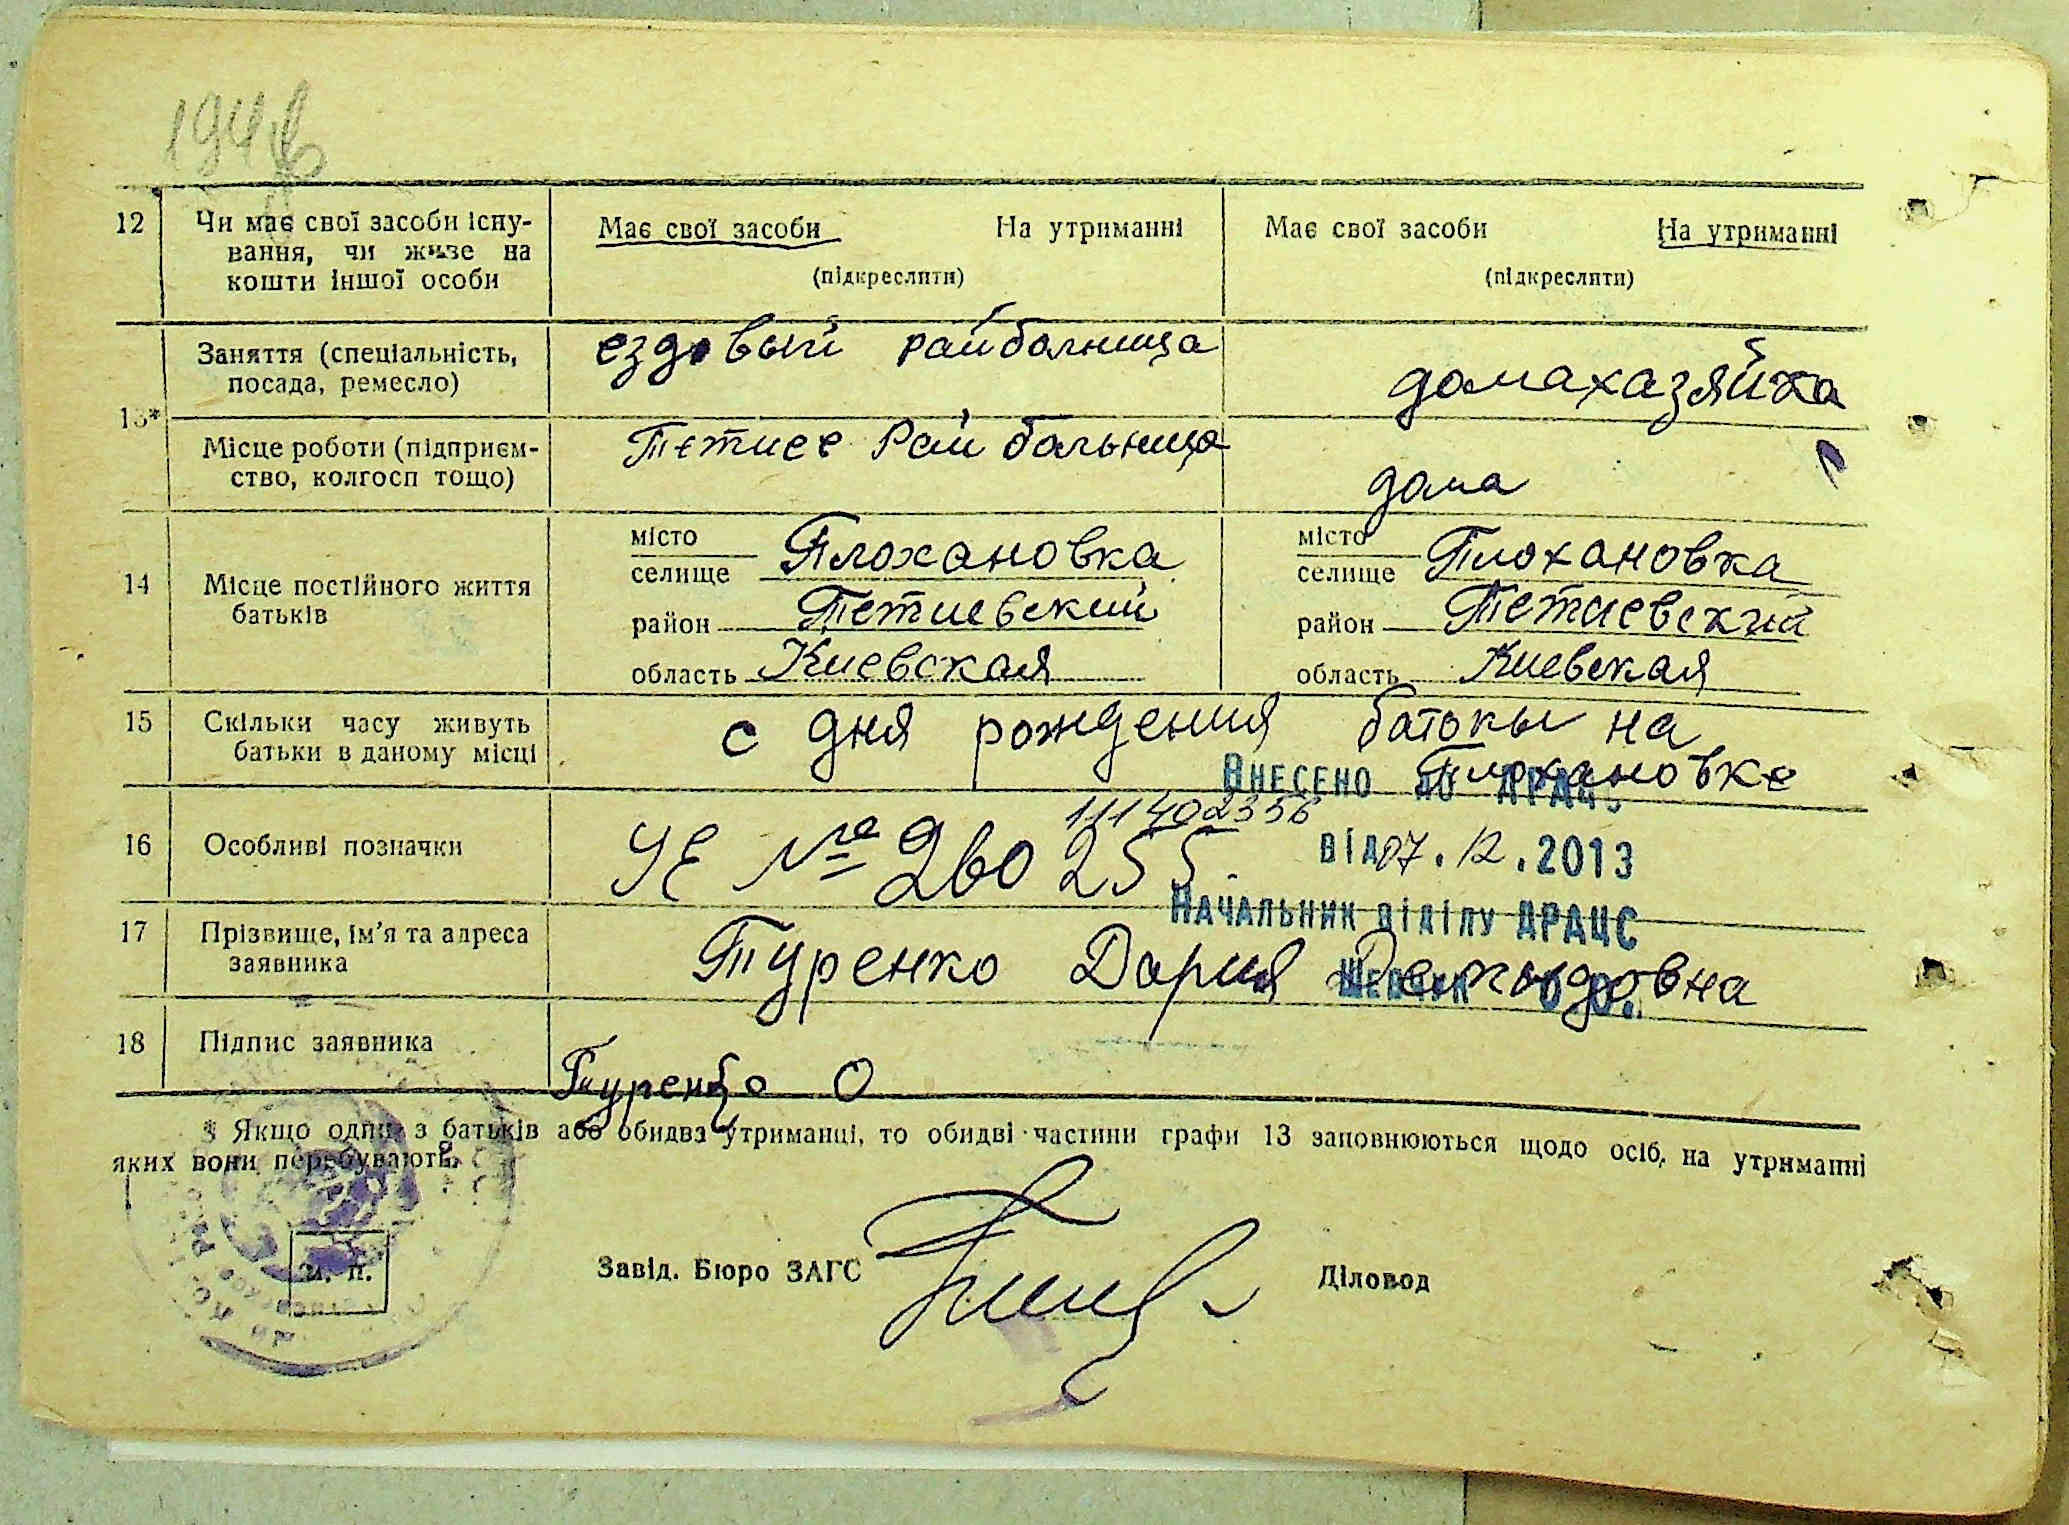 1946
12 Чи має свої засоби існу-
вання, чи живе на
кошти іншої особи
Має свої засоби На утриманні
(підкреслити)
Має свої засоби На утриманні
(підкреслити)
13*
Заняття (спеціальність,
посада, ремесло)
ездовый райболница
домахазяйка
Місце роботи (підприєм-
ство, колгосп тощо)
Тетиев Рай больница
дома
14 Місце постійного життя
батьків
місто
селище Плохановка
район Тетиевский
область Киевская
місто
селище Плохановка
район Тетиевский
область Киевская
15 Скільки часу живуть
батьки в даному місці
с дня рождения батькы на
Плохановке
Внесено до ДРАЦС
111402356
від 07.12.2013
16 Особливі позначки
УЕ № 260255
Начальник відділу ДРАЦС
17 Прізвище, ім'я та адреса
заявника
Туренко Дария
Шевчук О.О.
18 Підпис заявника
Туренко О
* Якщо один з батьків або обидва утриманці, то обидві частини графи 13 заповнюються щодо осіб, на утриманні
яких вони перебувають.
М. П.
Завід. Бюро ЗАГС
Діловод